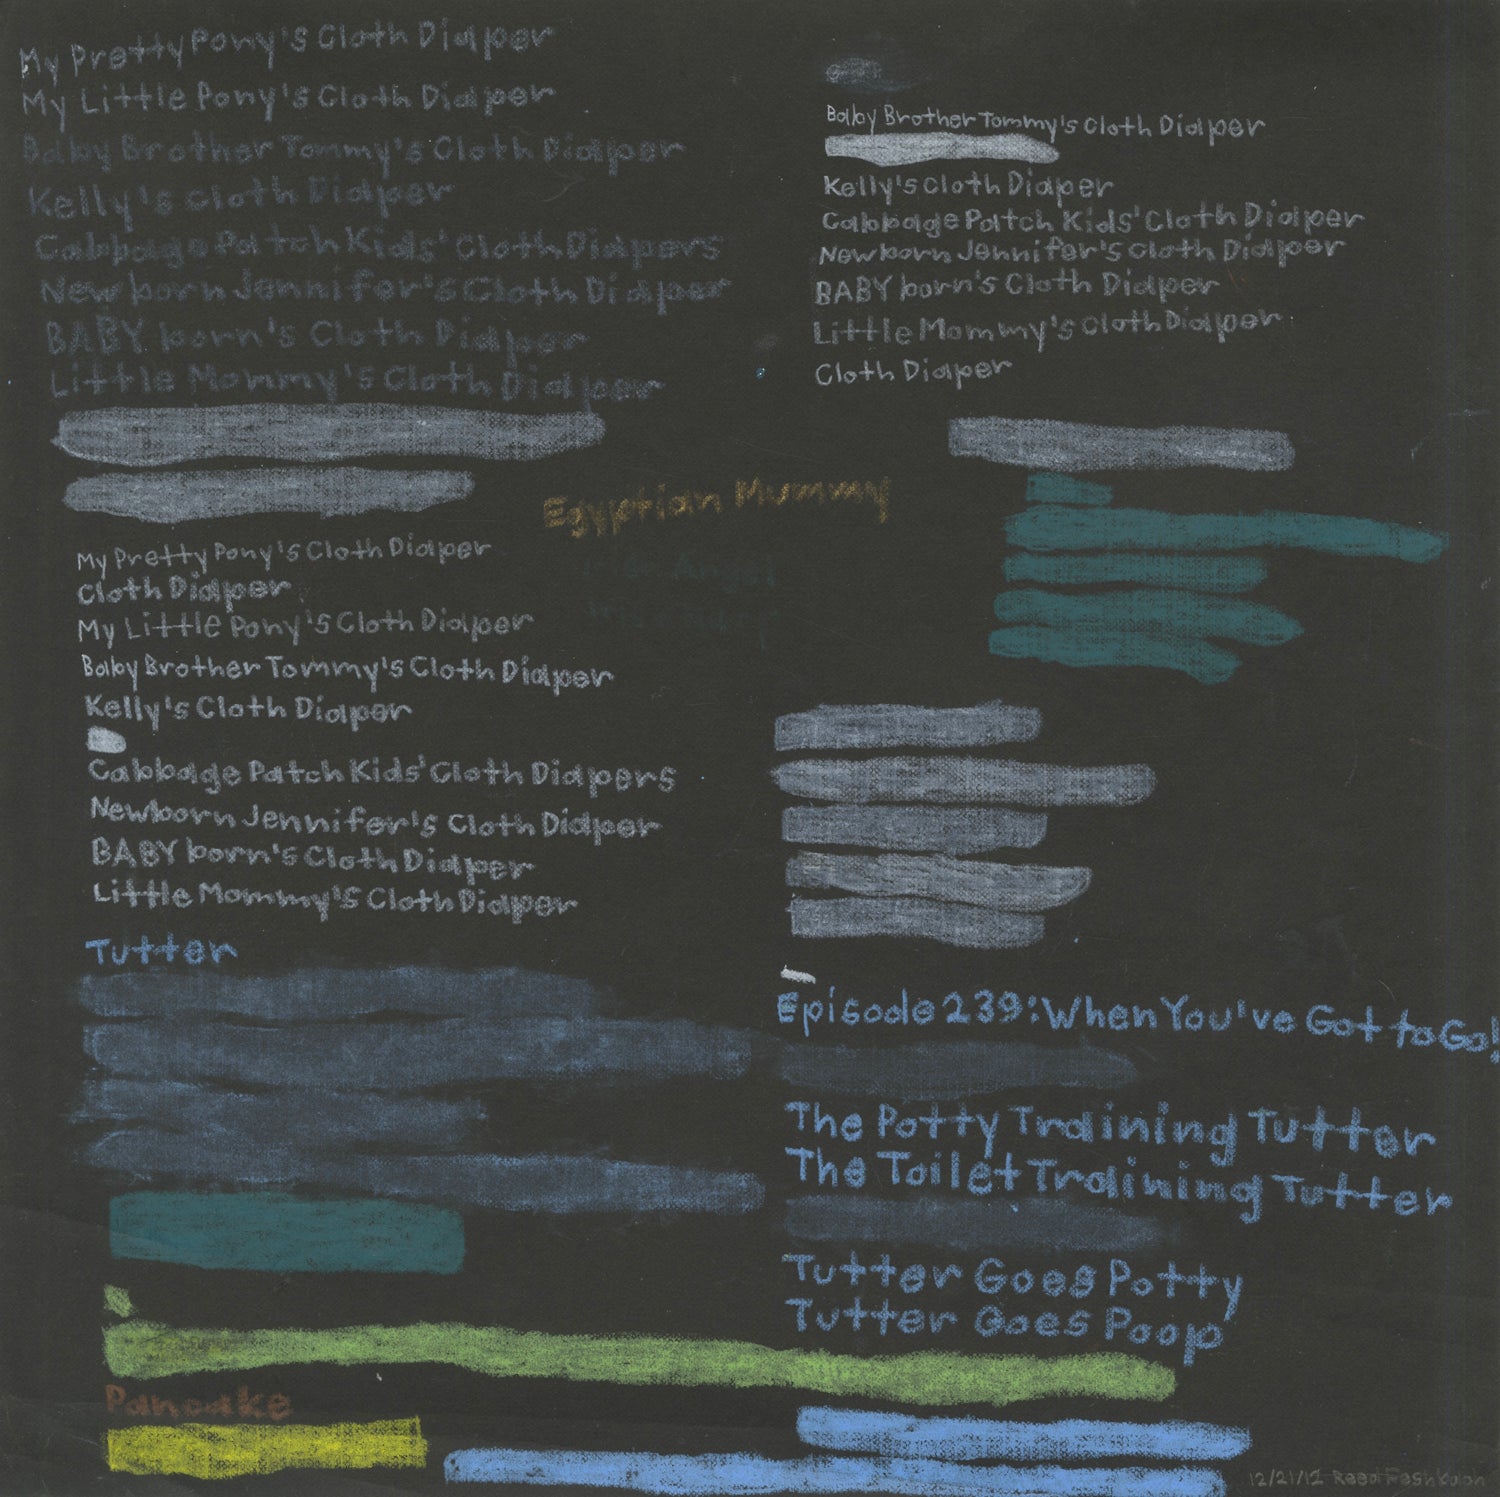 My Pretty Pony's Cloth Diaper
My Little Pony's Cloth Diaper
Baby Brother Tommy's Cloth Diaper
Kelly's Cloth Diaper
Cabbage Patch Kids' Cloth Diapers
Newborn Jennifer's Cloth Diaper
BABY born's Cloth Diaper
Little Mommy's Cloth Diaper
My Pretty Pony's Cloth Diaper
Cloth Diaper
My Little Pony's Cloth Diaper
Baby Brother Tommy's Cloth Diaper
Kelly's Cloth Diaper
Cabbage Patch Kids' Cloth Diapers
Newborn Jennifer's Cloth Diaper
BABY born's Cloth Diaper
Little Mommy's Cloth Diaper
Tutter
Pancake
Egyptian Mummy
Angel
Baby Brother Tommy's Cloth Diaper
Kelly's Cloth Diaper
Cabbage Patch Kids' Cloth Diaper
Newborn Jennifer's Cloth Diaper
BABY born's Cloth Diaper
Little Mommy's Cloth Diaper
Cloth Diaper
Episode 239: When You've Got to Go!
The Potty Training Tutter
The Toilet Training Tutter
Tutter Goes Potty
Tutter Goes Poop
12/21/12 Reed